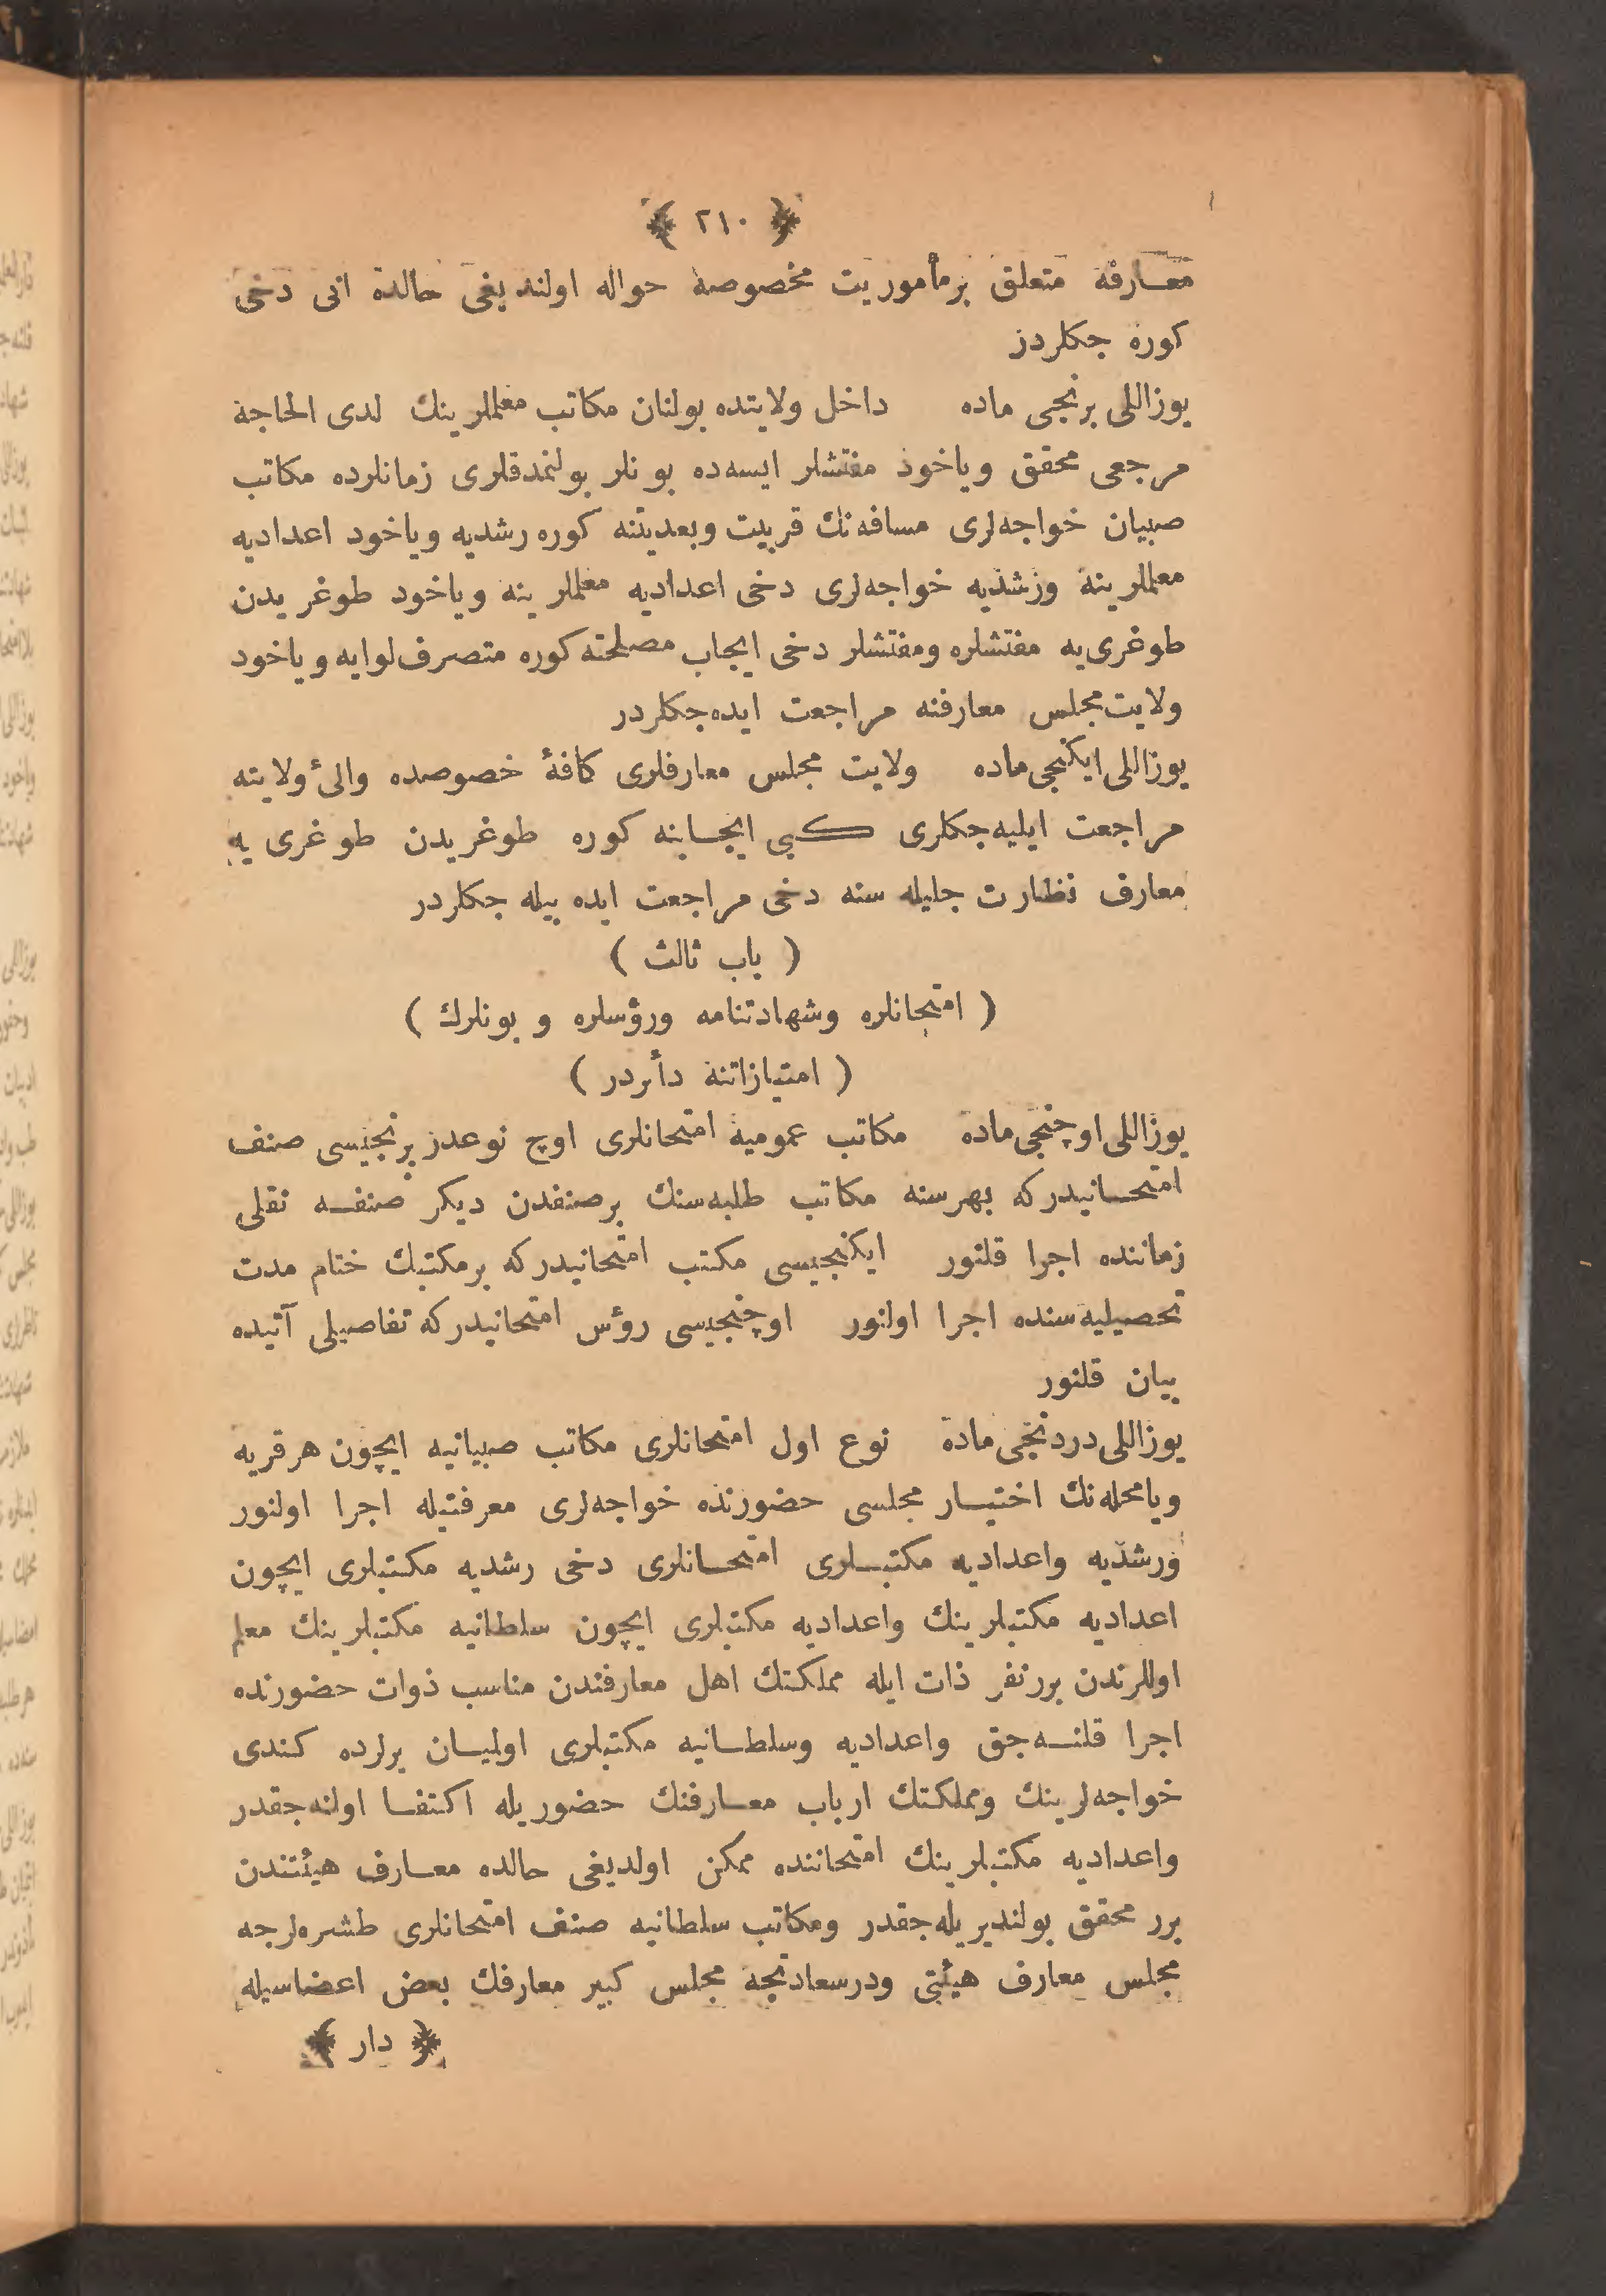 ﴿ ٢١٠ ﴾
معارفه متعلق برمأموریت مخصوصه حواله اولندیغی حالده انی دخی
کوره جکلردر
یوزاللی برنجی ماده داخل ولایتده بولنان مکاتب معلملرینك لدی الحاجة
مرجعی محقق ویاخود مفتشلر ایسه‌ده بونلر بولنمدقلری زمانلرده مکاتب
صبیان خواجه‌لری مسافه‌نك قربیت وبعدیتنه کوره رشدیه ویاخود اعدادیه
معلملرینه ورشدیه خواجه‌لری دخی اعدادیه معلملرینه ویاخود طوغریدن
طوغری‌یه مفتشلره ومفتشلر دخی ایجاب مصلحته کوره متصرف لوایه ویاخود
ولایت مجلس معارفنه مراجعت ایده‌جکلردر
یوزاللی ایکنجی ماده ولایت مجلس معارفلری کافهٔ خصوصده والئ ولایته
مراجعت ایلیه‌جکلری کبی ایجابنه کوره طوغریدن طوغری یه
معارف نظارت جلیله سنه دخی مراجعت ایده بیله جکلردر
( باب ثالث )
( امتحانلره وشهادتنامه ورؤسلره و بونلرك )
( امتیازاتنه دأردر )
یوزاللی اوچنجی ماده مکاتب عمومیه امتحانلری اوچ نوعدر برنجیسی صنف
امتحانیدرکه بهرسنه مکاتب طلبه‌سنك برصنفدن دیکر صنفه نقلی
زماننده اجرا قلنور ایکنجیسی مکتب امتحانیدرکه برمکتبك ختام مدت
تحصیلیه‌سنده اجرا اولنور اوچنجیسی رؤس امتحانیدرکه تفاصیلی آتیده
بیان قلنور
یوزاللی دردنجی ماده نوع اول امتحانلری مکاتب صبیانیه ایچون هرقریه
ویامحله‌نك اختیار مجلسی حضورنده خواجه‌لری معرفتیله اجرا اولنور
ورشدیه واعدادیه مکتبلری امتحانلری دخی رشدیه مکتبلری ایچون
اعدادیه مکتبلرینك واعدادیه مکتبلری ایچون سلطانیه مکتبلرینك معلم
اوللرندن بررنفر ذات ایله مملکتك اهل معارفندن مناسب ذوات حضورنده
اجرا قلنه‌جق واعدادیه وسلطانیه مکتبلری اولیان یرلرده کندی
خواجه‌لرینك ومملکتك ارباب معارفنك حضوریله اکتفا اولنه‌جقدر
واعدادیه مکتبلرینك امتحاننده ممکن اولدیغی حالده معارف هیئتندن
برر محقق بولندیریله‌جقدر ومکاتب سلطانیه صنف امتحانلری طشره‌لرجه
مجلس معارف هیئتی ودرسعادتجه مجلس کبیر معارفك بعض اعضاسیله
﴿ دار ﴾